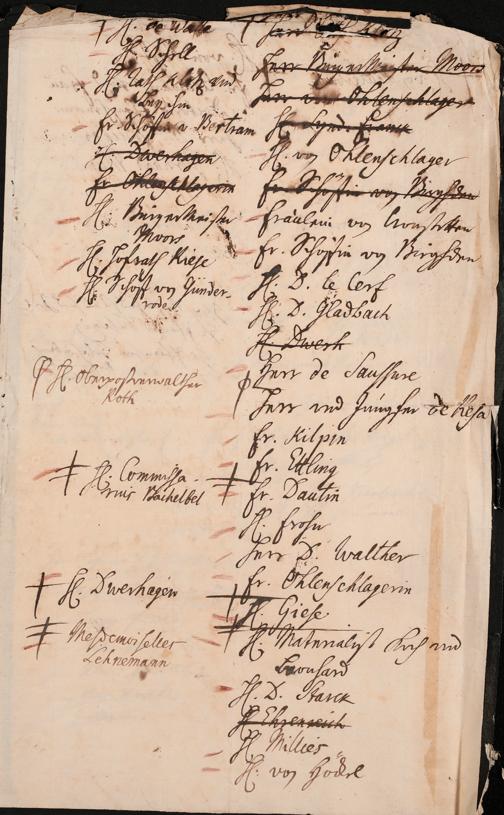 H. de Walle
H. Scholl
H. Rath Klotz und
Fr. Schöffin v. Bertram
H. Dwerhagen
Fr. Ohlenschlagerin
H. Burgermeister
Moors
H. Hofrath Riese
H. Schöff von Günder-
rode
H. Oberpostverwalther
Roth
H. Commissa-
rius Bachelbel
H. Dwerhagen
Mesdemoiselles
Lehnemann
Klotz
Herr Burgermeister Moors
Herr von Ohlenschlager
H. Synd. Franck
H. von Ohlenschlager
Fr. Schöffin von
Fräulein von Cronstetten
Fr. Schöffin von
H. D. le Cerf
H. D. Gladbach
H. Dwerh
Herr de Saussure
Herr und Jungfer de Resa
Fr. Kilpin
Fr. Ettling
Fr. Dautin
H. Frohn
Herr D. Walther
Fr. Ohlenschlagerin
H. Giese
H. Materialist Koch und
H. D. Starck
H. Ehrenreich
H. Millies
H. von